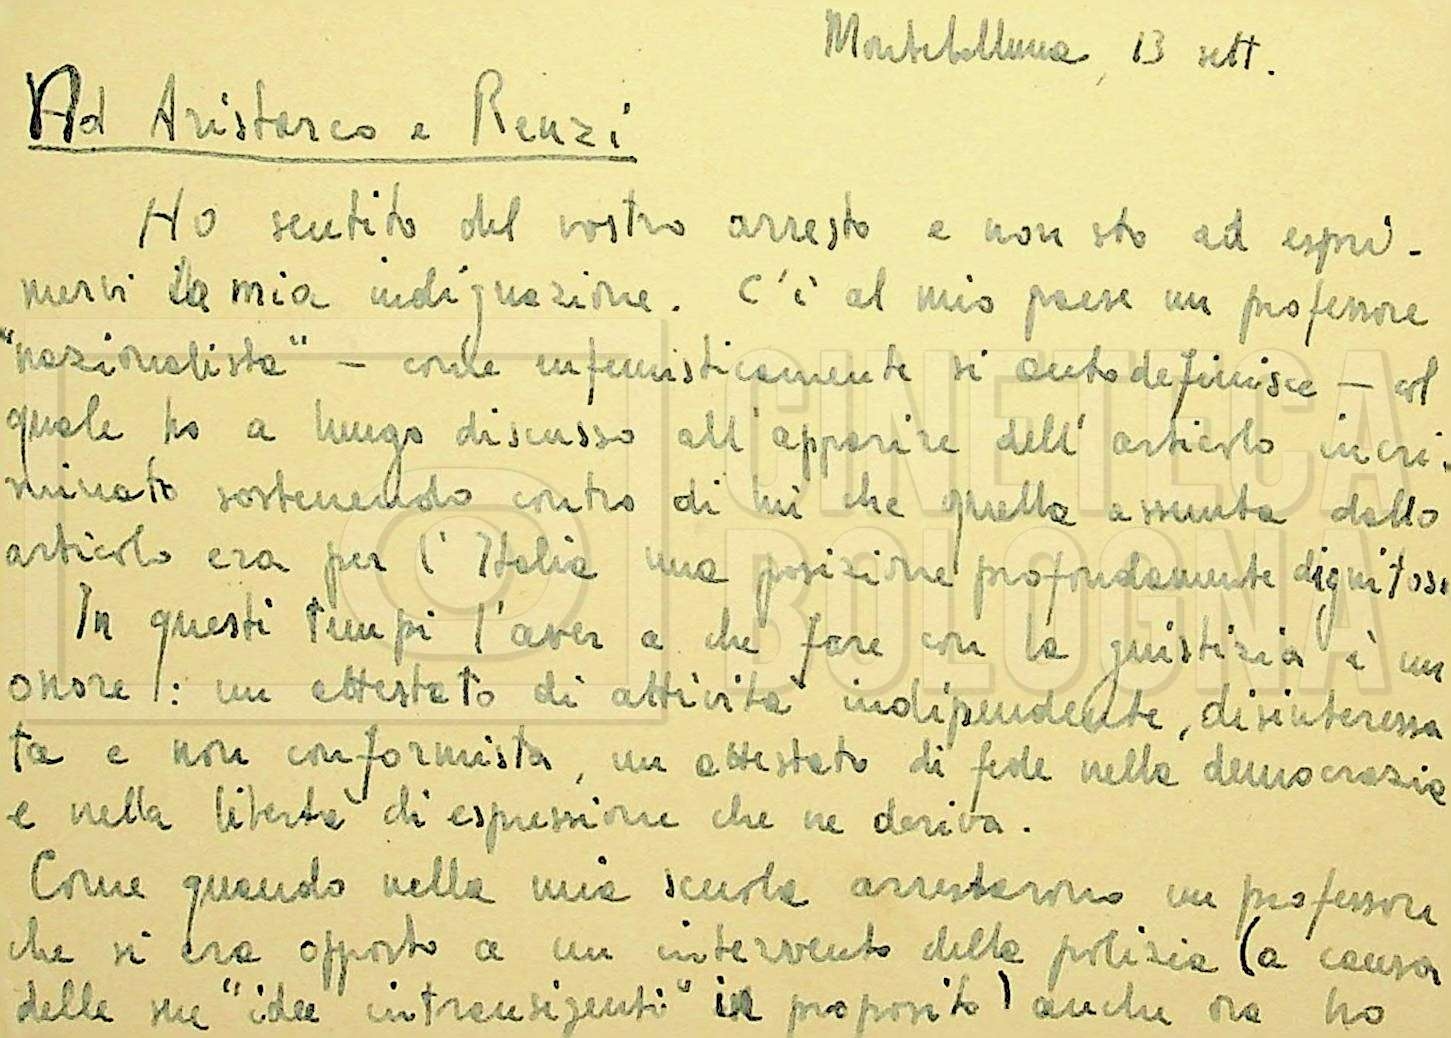 Montebelluna, 13 sett.
Ad Aristarco e Renzi
Ho sentito del vostro arresto e non sto ad espri-
mervi la mia indignazione. C'è al mio paese un professore
"nazionalista" – come eufemisticamente si autodefinisce – col
quale ho a lungo discusso all'apparire dell'articolo incri-
minato sostenendo contro di lui che quella assunta dallo
articolo era per l'Italia una posizione profondamente dignitosa
In questi tempi l'aver a che fare con la giustizia è un
onore: un attestato di attività indipendente, disinteressa
ta e non conformista, un attestato di fede nella democrazia
e nella libertà di espressione che ne deriva.
Come quando nella mia scuola arrestarono un professore
che si era opposto a un intervento della polizia (a causa
delle sue "idee intransigenti" in proposito) anche ora ho
CINETECA
BOLOGNA